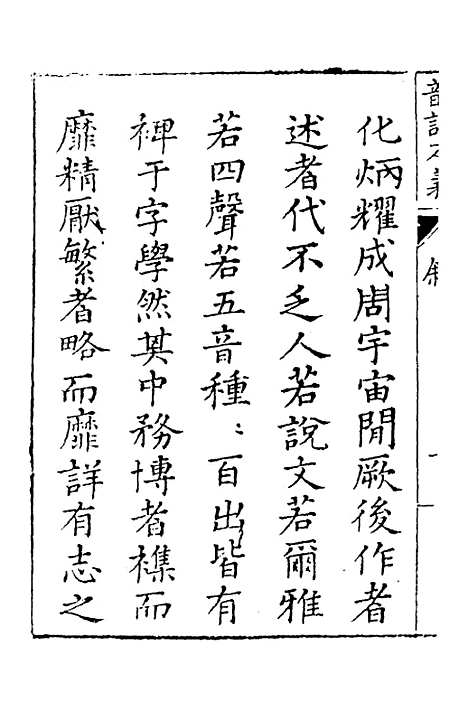 化炳耀成周宇宙閒厥後作者
述者代不乏人若說文若爾雅
若四聲若五音種〻百出皆有
裨于字學然其中務博者襍而
靡精厭繁者略而靡詳有志之